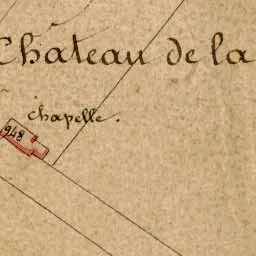 Château de la
chapelle.
948